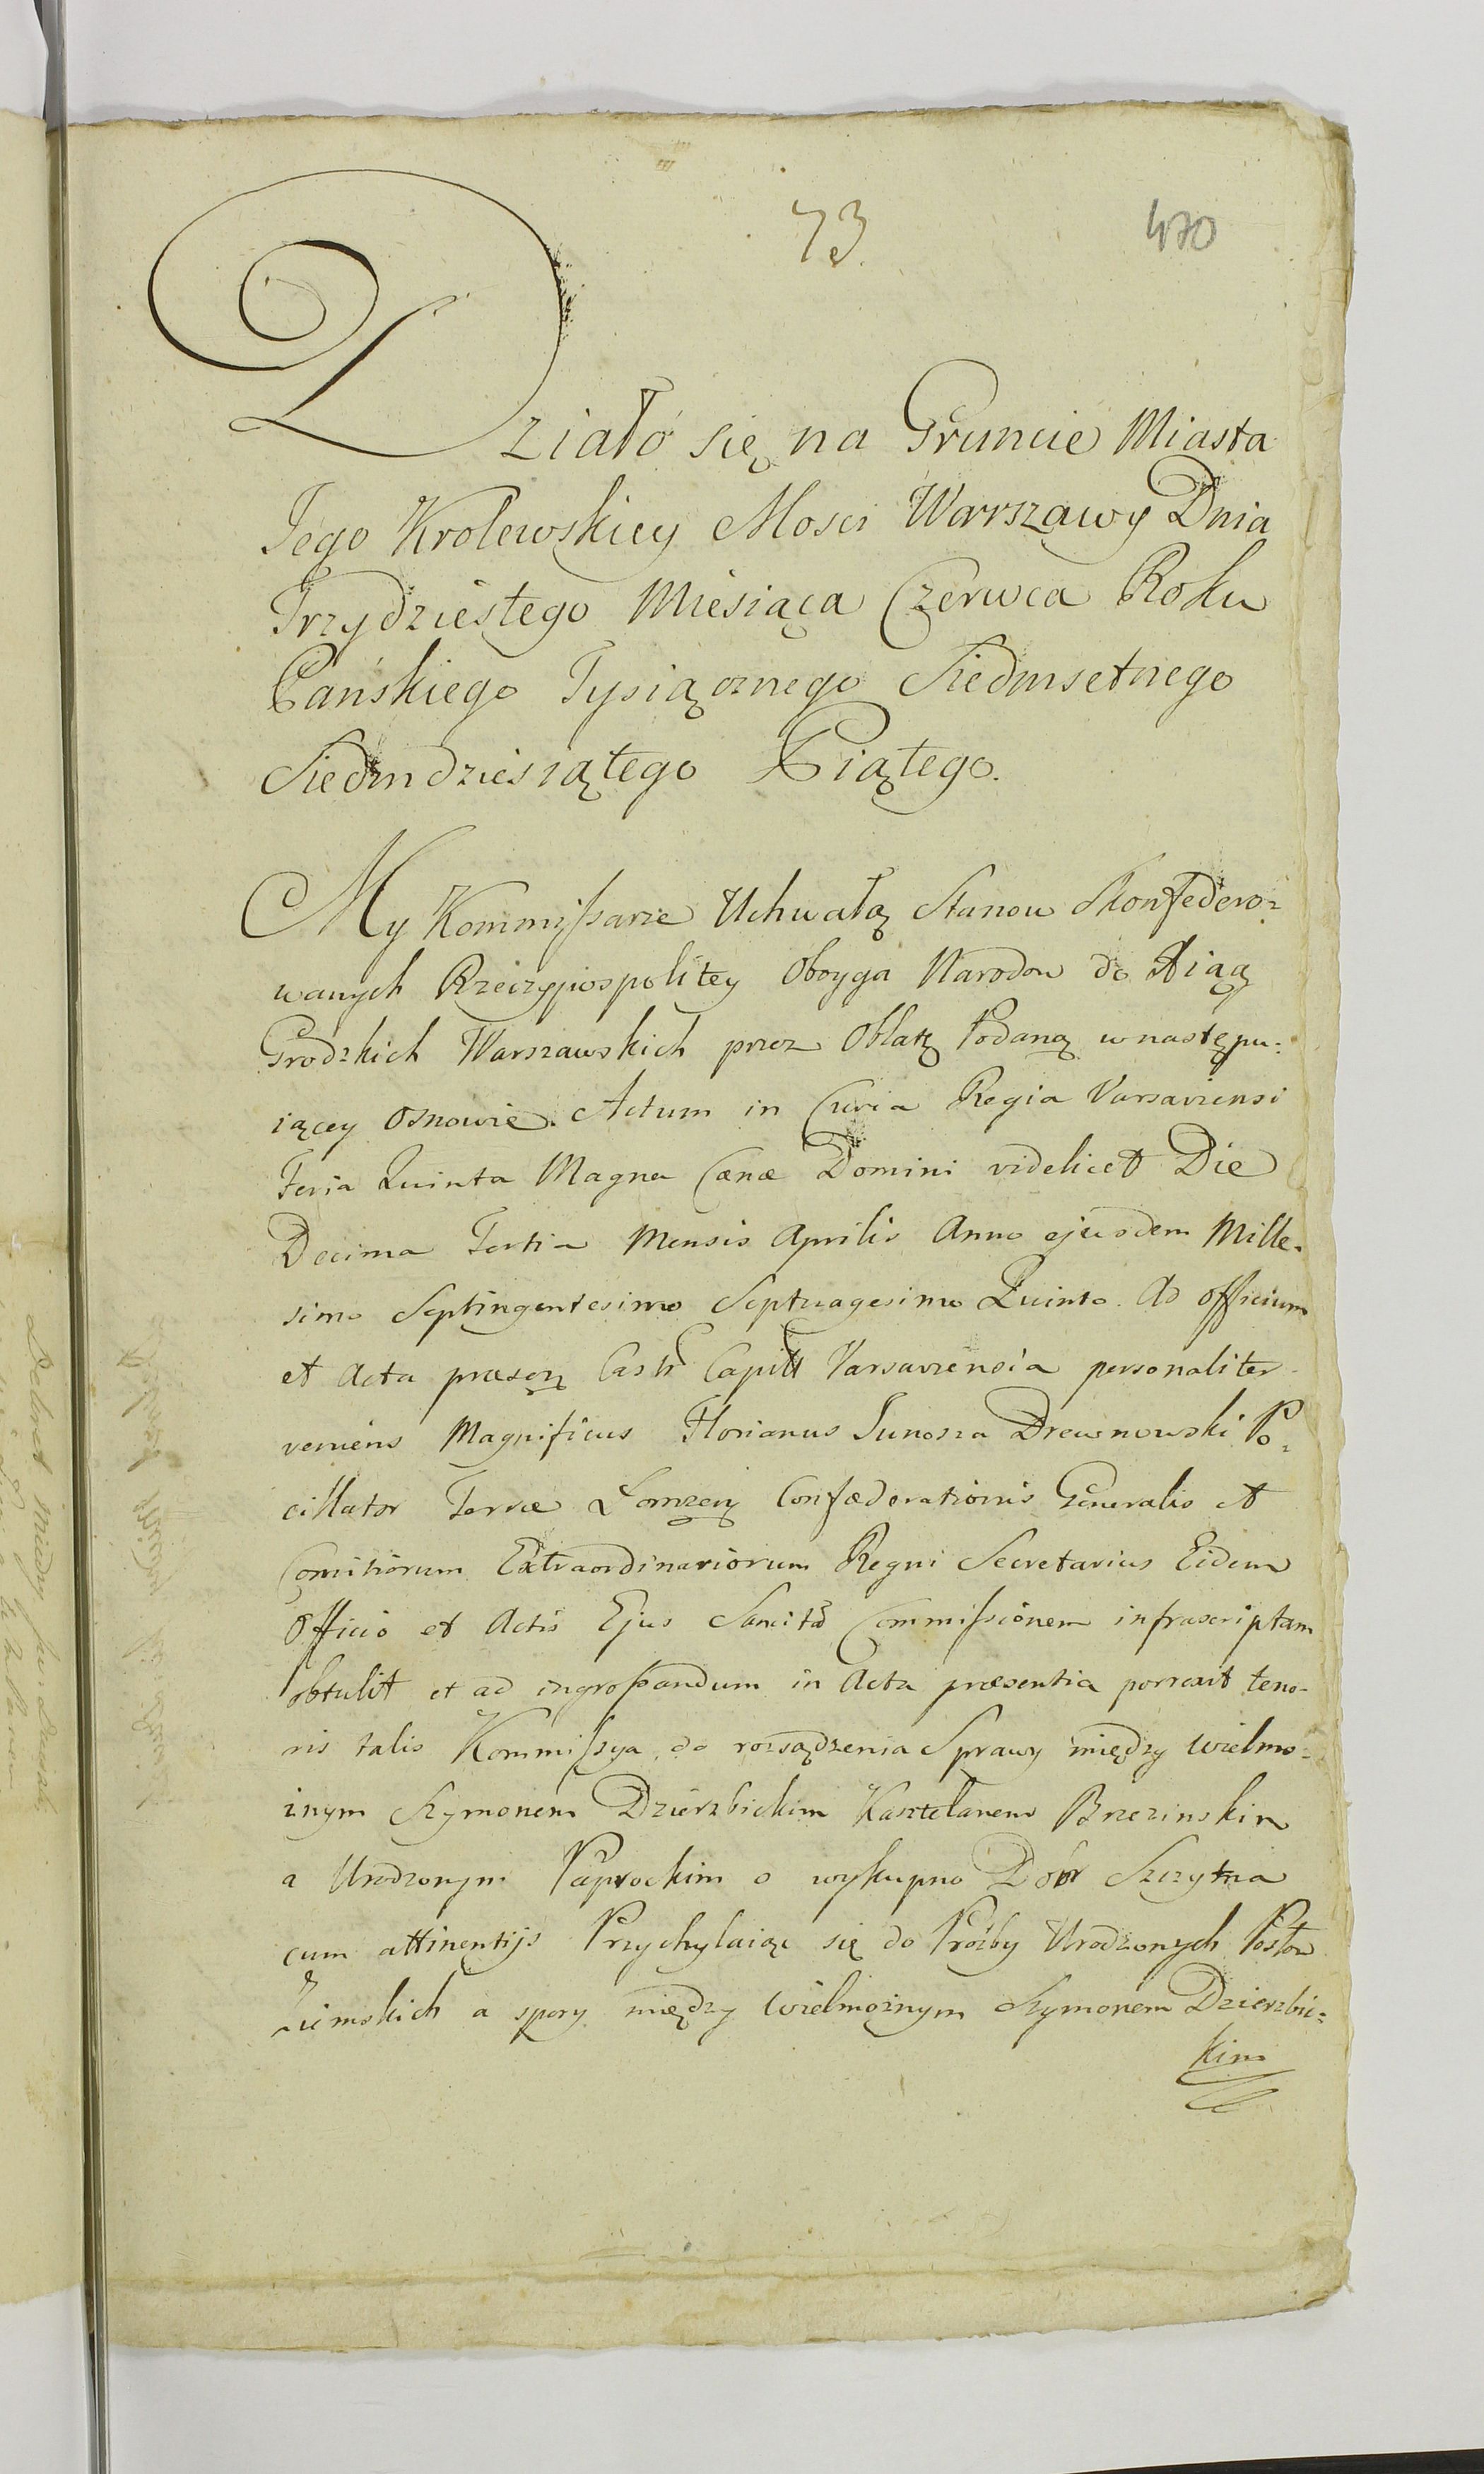 73.
470
Działo się na Gruncie Miasta
Jego Krolewskiey Mosci Warszawy Dnia
Trzydziestego Miesiąca Czerwca Roku
Pańskiego Tysiącznego Siedmsetnego
Siedmdziesiątego Piątego.
My Kommissarze Uchwałą Stanow Skonfedero=
wanych Rzeczypospolitey Oboyga Narodow do Xiąg
Grodzkich Warszawskich przez Oblatę Podaną w następu=
iącey Osnowie. Actum in Curia Regia Varsaviensi
Feria Quinta Magna Cænæ Domini videlicet Die
Decima Tertia Mensis Aprilis Anno ejusdem Mille-
simo Septingentesimo Septuagesimo Quinto. Ad Officium
et Acta præsen Castr Capitt Varsaviensia personaliter
veniens Magnificus Florianus Junosza Drewnowski Po=
cillator Terræ Łomzen Confæderationis Generalis et
Comitiorum Extraordinariorum Regni Secretarius Eidem
Officio et Actis Ejus Sancitã Commissionem infrascriptam
obtulit et ad ingrossandum in Acta præsentia porrexit teno-
ris talis Kommissya do rozsądzenia Sprawy między Wielmo=
żnym Szymonem Dzierzbickim Kasztelanem Brzezinskim
a Urodzonym Paprockim o wykupno Dóbr Szczytna
cum attinentijs Przychylaiąc się do Prózby Urodzonych Posłow
Ziemskich a spory między Wielmożnym Szymonem Dzierzbic=
kim